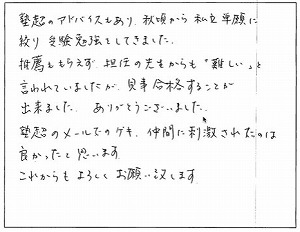 塾超のアドバイスもあり、秋頃から私立単願に
絞り受験勉強をしてきました。
推薦ももらえず、担任の先生からも"難しい"と
言われていましたが、見事合格することが
出来ました。ありがとうございました。
塾超のメールでのゲキ、仲間に刺激されたのは
良かったと思います。
これからもよろしくお願い致します。